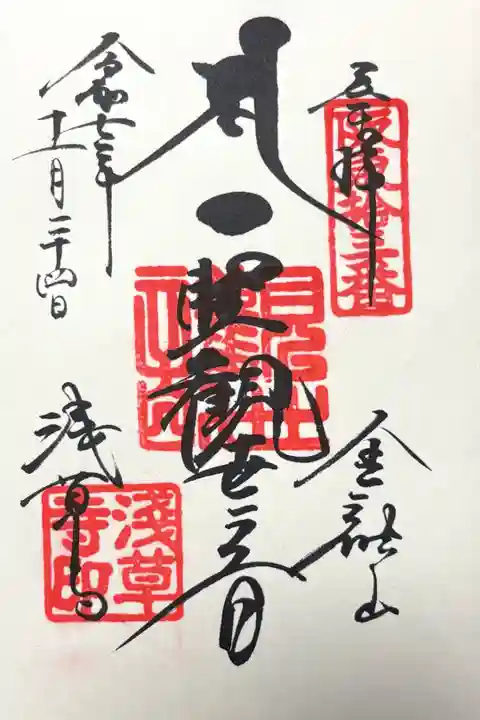 奉拝
坂東拾三番
聖観世音
金龍山
令和七年
十一月二十四日
浅草寺
淺草寺印